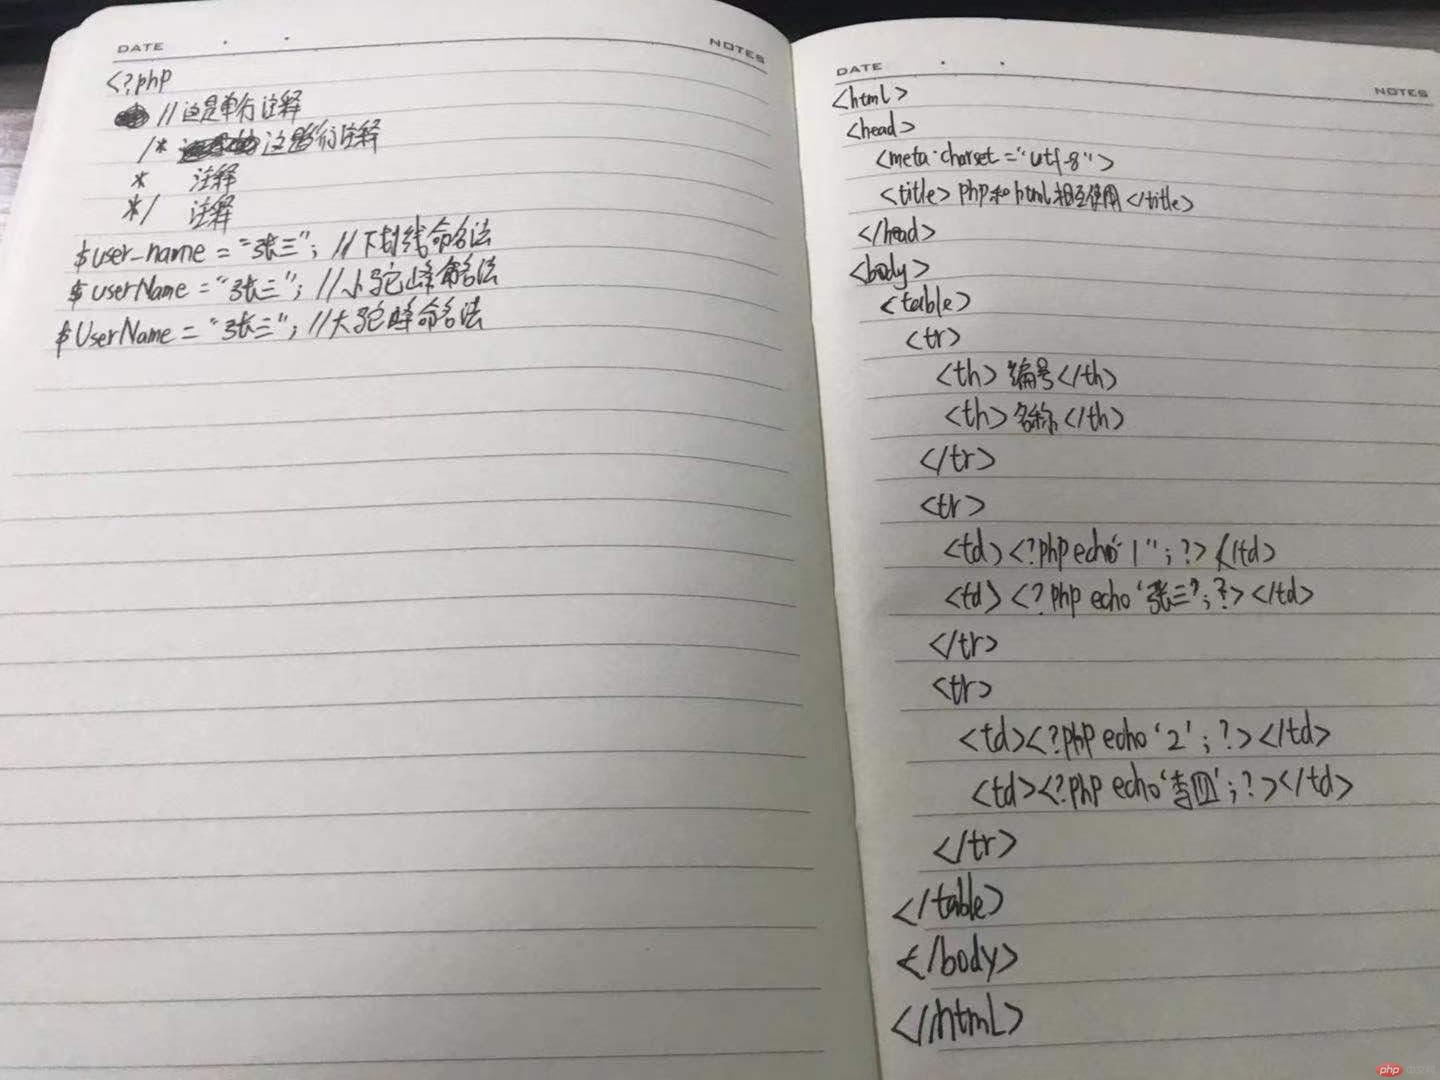 DATE
NOTES
<?php
//这是单行注释
/* 这是多行注释
* 注释
*/ 注释
$user_name = "张三"; //下划线命名法
$userName = "张三"; //小驼峰命名法
$UserName = "张三"; //大驼峰命名法
DATE
NOTES
<html>
<head>
<meta charset="utf-8">
<title>php和html相互使用</title>
</head>
<body>
<table>
<tr>
<th>编号</th>
<th>名称</th>
</tr>
<tr>
<td><?php echo"1";?></td>
<td><?php echo '张三';?></td>
</tr>
<tr>
<td><?php echo '2';?></td>
<td><?php echo '李四';?></td>
</tr>
</table>
</body>
</html>
php